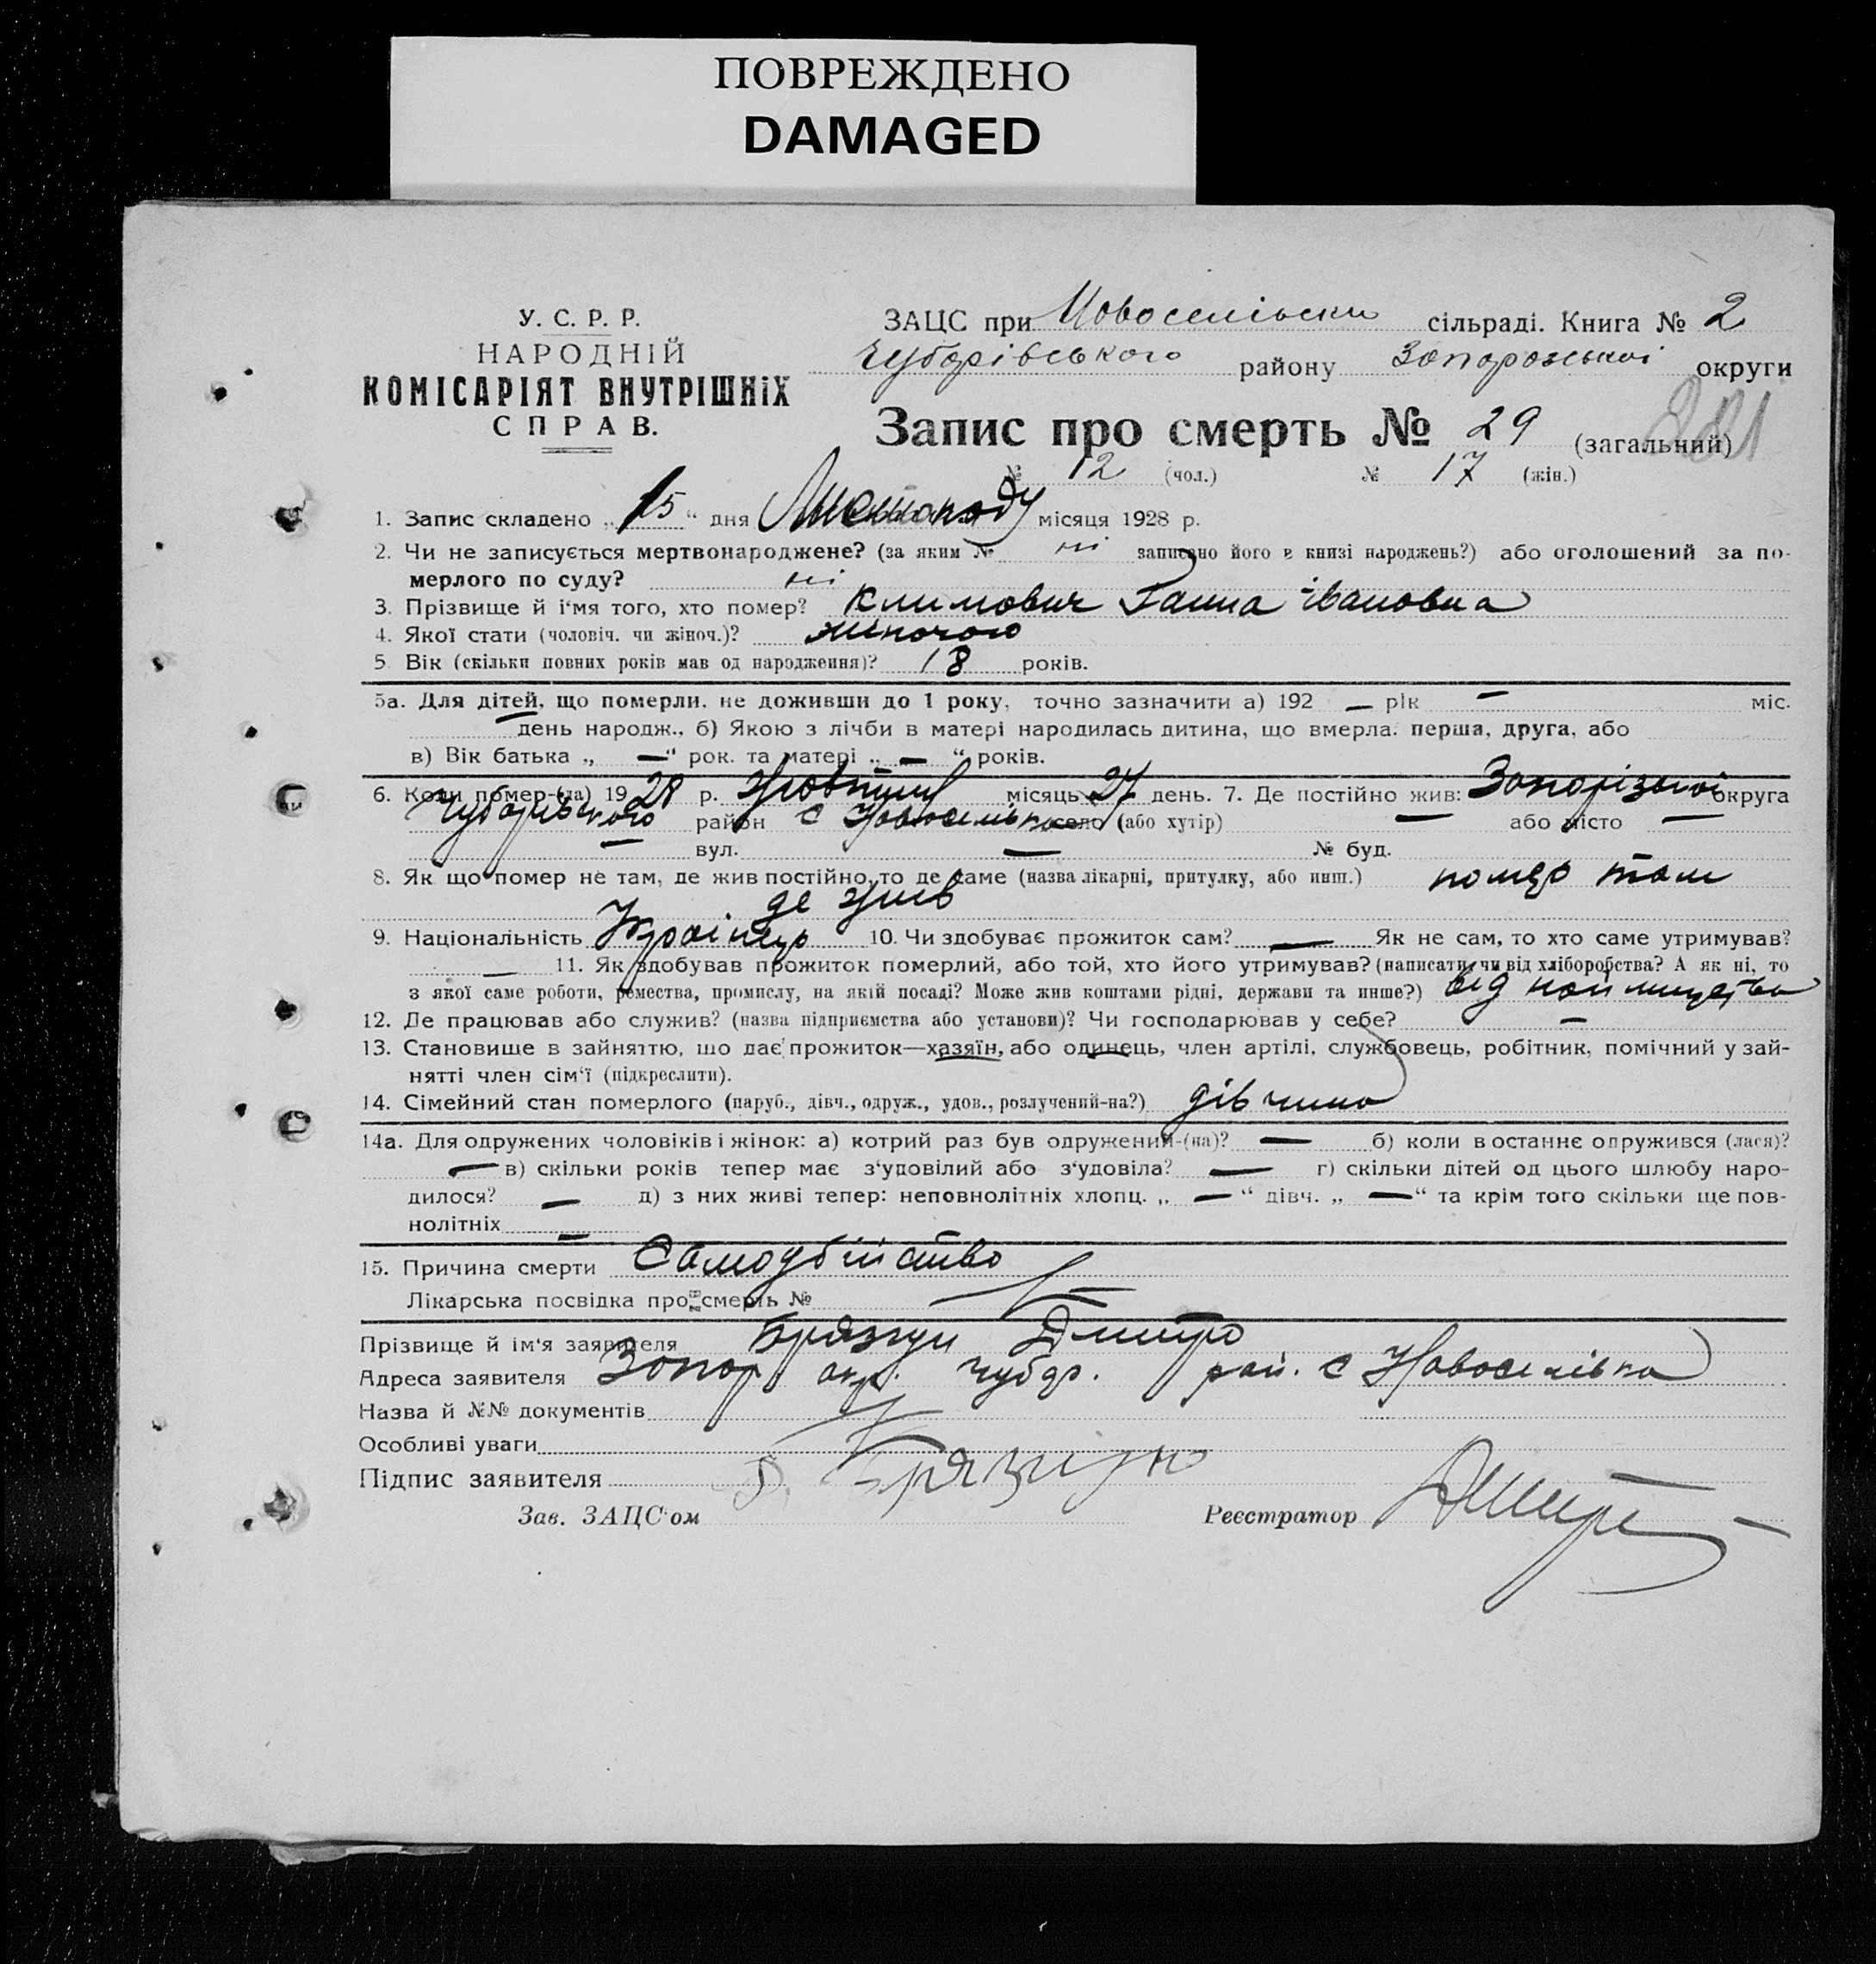 ПОВРЕЖДЕНО
DAMAGED
У. С. Р. Р.
НАРОДНІЙ
КОМІСАРІЯТ ВНУТРІШНІХ
СПРАВ.
ЗАЦС при Новоселівськи сільраді. Книга № 2
Чубарівського району Запорозької округи
Запис про смерть № 29 (загальний)
№ 12 (чол.) № 17 (жін.)
1. Запис складено „15“ дня Листопаду місяця 1928 р.
2. Чи не записується мертвонароджене? (за яким № ні записано його в книзі народжень?) або оголошений за по-
мерлого по суду? ні
3. Прізвище й і'мя того, хто помер? Климович Ганна Івановна
4. Якої стати (чоловіч. чи жіноч.)? жіночого
5. Вік (скільки повних років мав од народження)? 18 років.
5а. Для дітей, що померли, не доживши до 1 року, точно зазначити а) 192 — рік — міс.
— день народж., б) Якою з лічби в матері народилась дитина, що вмерла: перша, друга, або
в) Вік батька „ — “ рок. та матері „ — “ років.
6. Коли помер-(ла) 1928 р. Жовтня місяць 27 день. 7. Де постійно жив: Запорізької округа
Чубарівського район с Новоселівка село (або хутір) — або місто —
— вул. — № буд.
8. Як що помер не там, де жив постійно, то де саме (назва лікарні, притулку, або инш.) помер там
де жив
9. Національність Українець 10. Чи здобуває прожиток сам? — Як не сам, то хто саме утримував?
— 11. Як здобував прожиток померлий, або той, хто його утримував? (написати, чи від хліборобства? А як ні, то
з якої саме роботи, ремества, промислу, на якій посаді? Може жив коштами рідні, держави та инше?) від наймицтва
12. Де працював або служив? (назва підприємства або установи)? Чи господарював у себе? —
13. Становище в зайняттю, що дає прожиток—хазяїн, або одинець, член артілі, службовець, робітник, помічний у зай-
нятті член сім'ї (підкреслити).
14. Сімейний стан померлого (паруб., дівч., одруж., удов., розлучений-на?) дівчина
14а. Для одружених чоловіків і жінок: а) котрий раз був одружений-(на)? — б) коли в останнє одружився (лася)?
— в) скільки років тепер має з'удовілий або з'удовіла? — г) скільки дітей од цього шлюбу наро-
дилося? — д) з них живі тепер: неповнолітніх хлопц. „ — “ дівч. „ — “ та крім того скільки ще пов-
нолітніх —
15. Причина смерти Самоубійство
Лікарська посвідка про смерть №
Прізвище й ім'я заявителя Брязгун Дмитро
Адреса заявителя Запор. окр. Чубар. рай. с Новоселівка
Назва й №№ документів
Особливі уваги
Підпис заявителя Д. Брязгун
Зав. ЗАЦС'ом Реєстратор